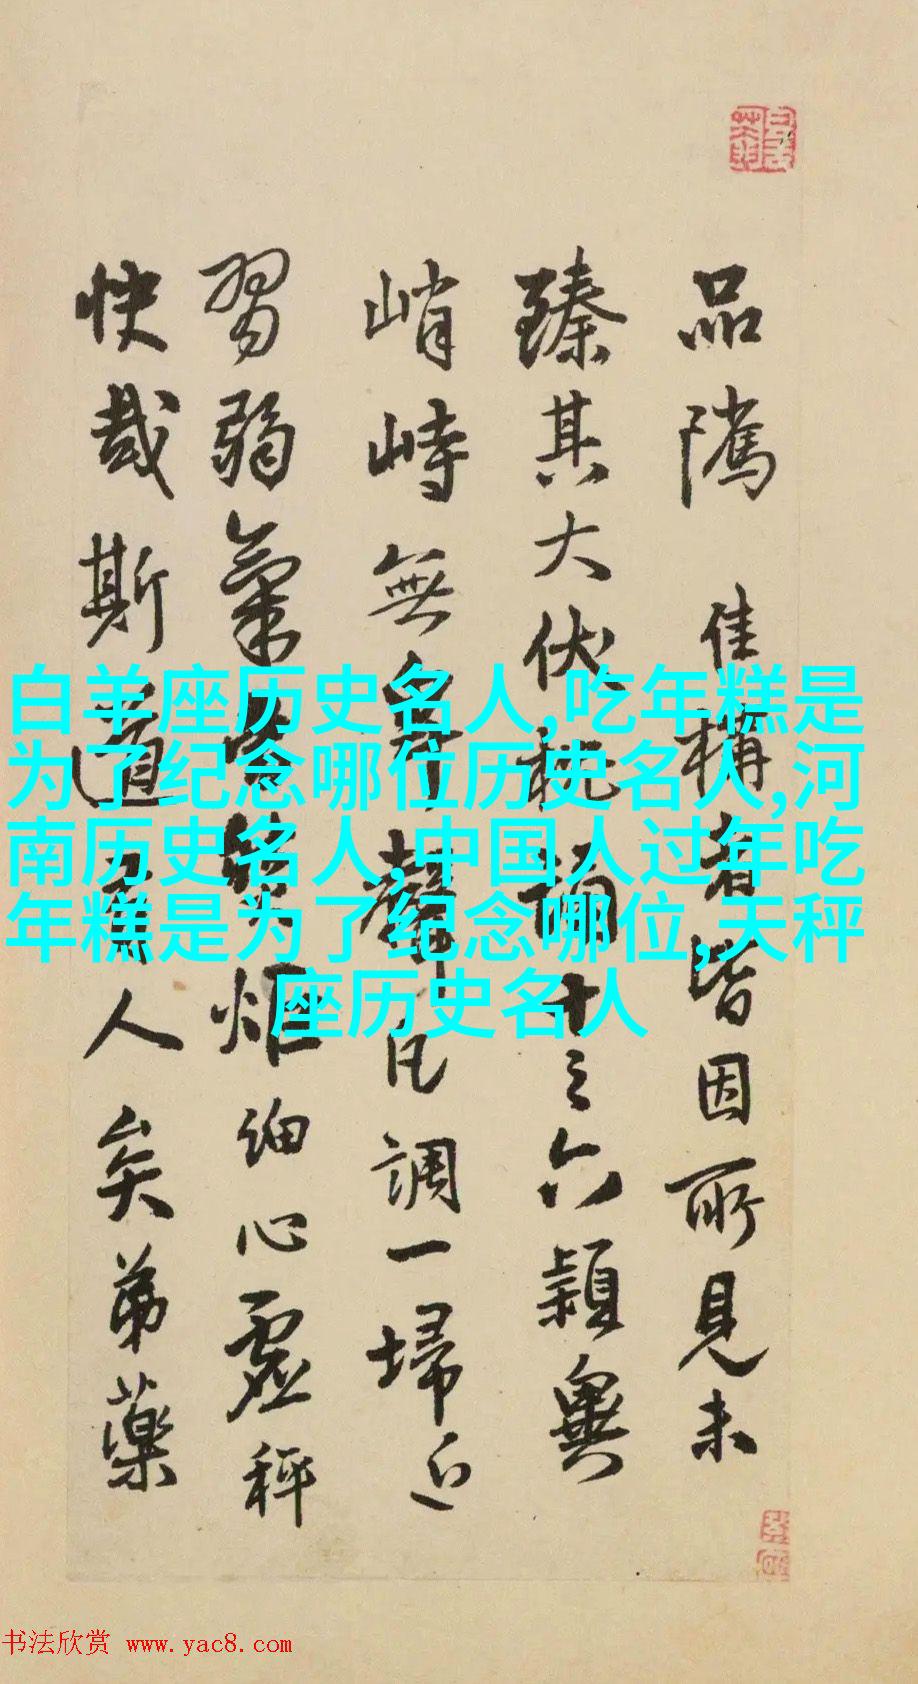 品隲佳構者皆因所見未
臻其大伏秔誦十三六穎奧
峭峙無
凡調一埽近
習弱氣
炬細心虛秤
快哉斯道
人矣弟藥
白羊座历史名人,吃年糕是
为了纪念哪位历史名人,河
南历史名人,中国人过年吃
年糕是为了纪念哪位,天秤
座历史名人
书法欣赏 www.yac8.com